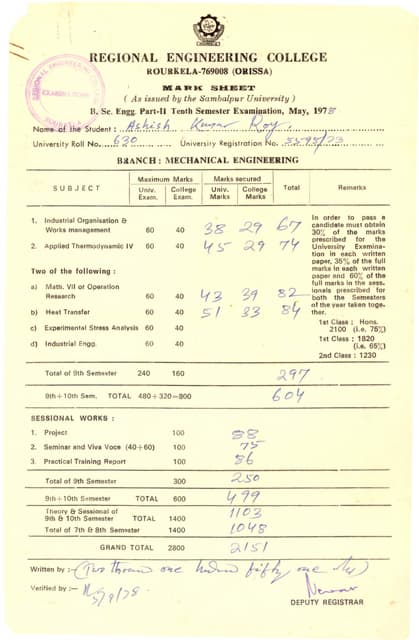 REGIONAL ENGINEERING COLLEGE
ROURKELA-769008 (ORISSA)
MARK SHEET
( As issued by the Sambalpur University )
B. Sc. Engg. Part-II Tenth Semester Examination, May, 1978
Name of the Student : Ashish Kumar Roy
University Roll No. 630 University Registration No. 5595/73
BRANCH : MECHANICAL ENGINEERING
SUBJECT Maximum Marks Marks secured Total Remarks
Univ. Exam. College Exam. Univ. Marks College Marks
1. Industrial Organisation & Works management 60 40 38 29 67
2. Applied Thermodynamic IV 60 40 45 29 74
Two of the following :
a) Math. VII of Operation Research 60 40 43 39 82
b) Heat Transfer 60 40 51 33 84
c) Experimental Stress Analysis 60 40
d) Industrial Engg. 60 40
In order to pass a
candidate must obtain
30% of the marks
prescribed for the
University Examina-
tion in each written
paper, 35% of the full
marks in each written
paper and 60% of the
full marks in the sess-
ionals prescribed for
both the Semesters
of the year taken toge-
ther.
1st Class : Hons.
2100 (i.e. 75%)
1st Class : 1820
(i.e. 65%)
2nd Class : 1230
Total of 9th Semester 240 160 297
9th+10th Sem. TOTAL 480+320=800 604
SESSIONAL WORKS :
1. Project 100 88
2. Seminar and Viva Voce (40+60) 100 75
3. Practical Training Report 100 86
Total of 9th Semester 300 250
9th+10th Semester TOTAL 600 499
Theory & Sessional of
9th & 10th Semester TOTAL 1400 1103
Total of 7th & 8th Semester 1400 1048
GRAND TOTAL 2800 2151
Written by :- (Two thousand one hundred fifty one only)
Verified by :-
DEPUTY REGISTRAR